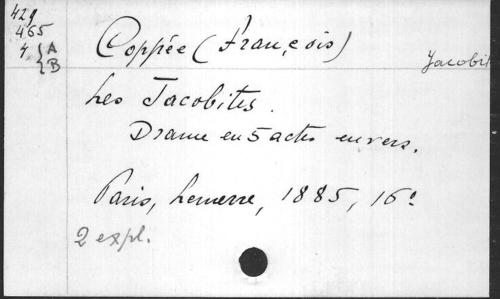 429
465
4 { A
B
Coppée (François)
Jacobit
Les Jacobites.
Drame en 5 actes en vers.
Paris, Lemerre, 1885, 16º
2 expl.